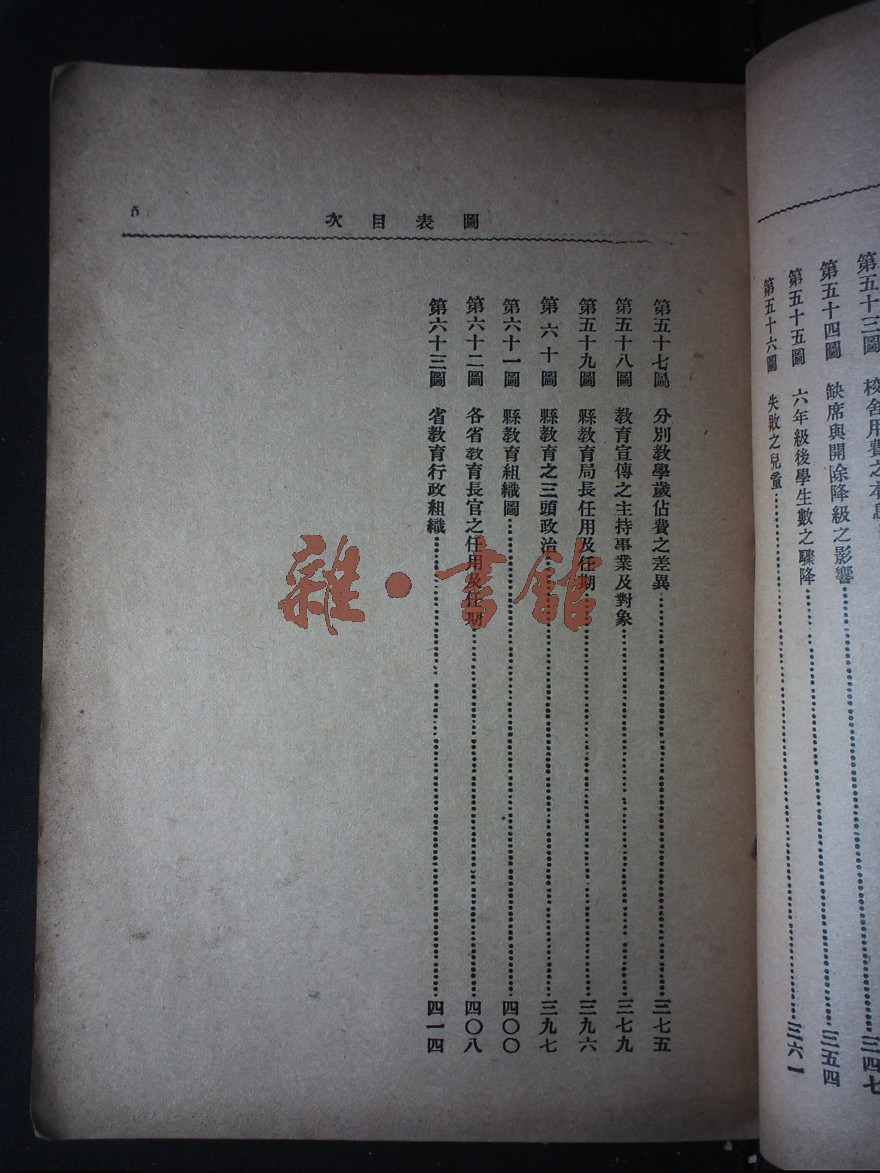 第五十三圖 校舍用費之本息 三四七
第五十四圖 缺席與開除降級之影響 三五四
第五十五圖 六年級後學生數之驟降
第五十六圖 失敗之兒童 三六一
5
次目表圖
第五十七圖 分別教學歲佔費之差異 三七五
第五十八圖 教育宣傳之主持事業及對象 三七九
第五十九圖 縣教育局長任用及任期 三九六
第六十圖 縣教育之三頭政治 三九七
第六十一圖 縣教育組織圖 四〇〇
第六十二圖 各省教育長官之任用及任期 四〇八
第六十三圖 省教育行政組織 四一四
雜·書館